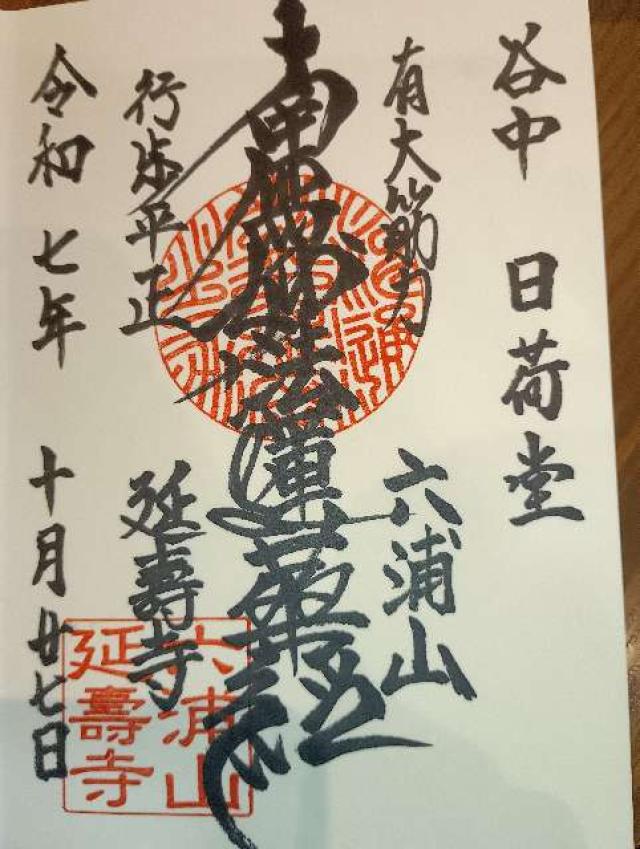 谷中 日荷堂
有大筋力
六浦山
南無妙法蓮華経
行歩平正
延壽寺
令和七年 十月廿七日
六浦山
延壽寺